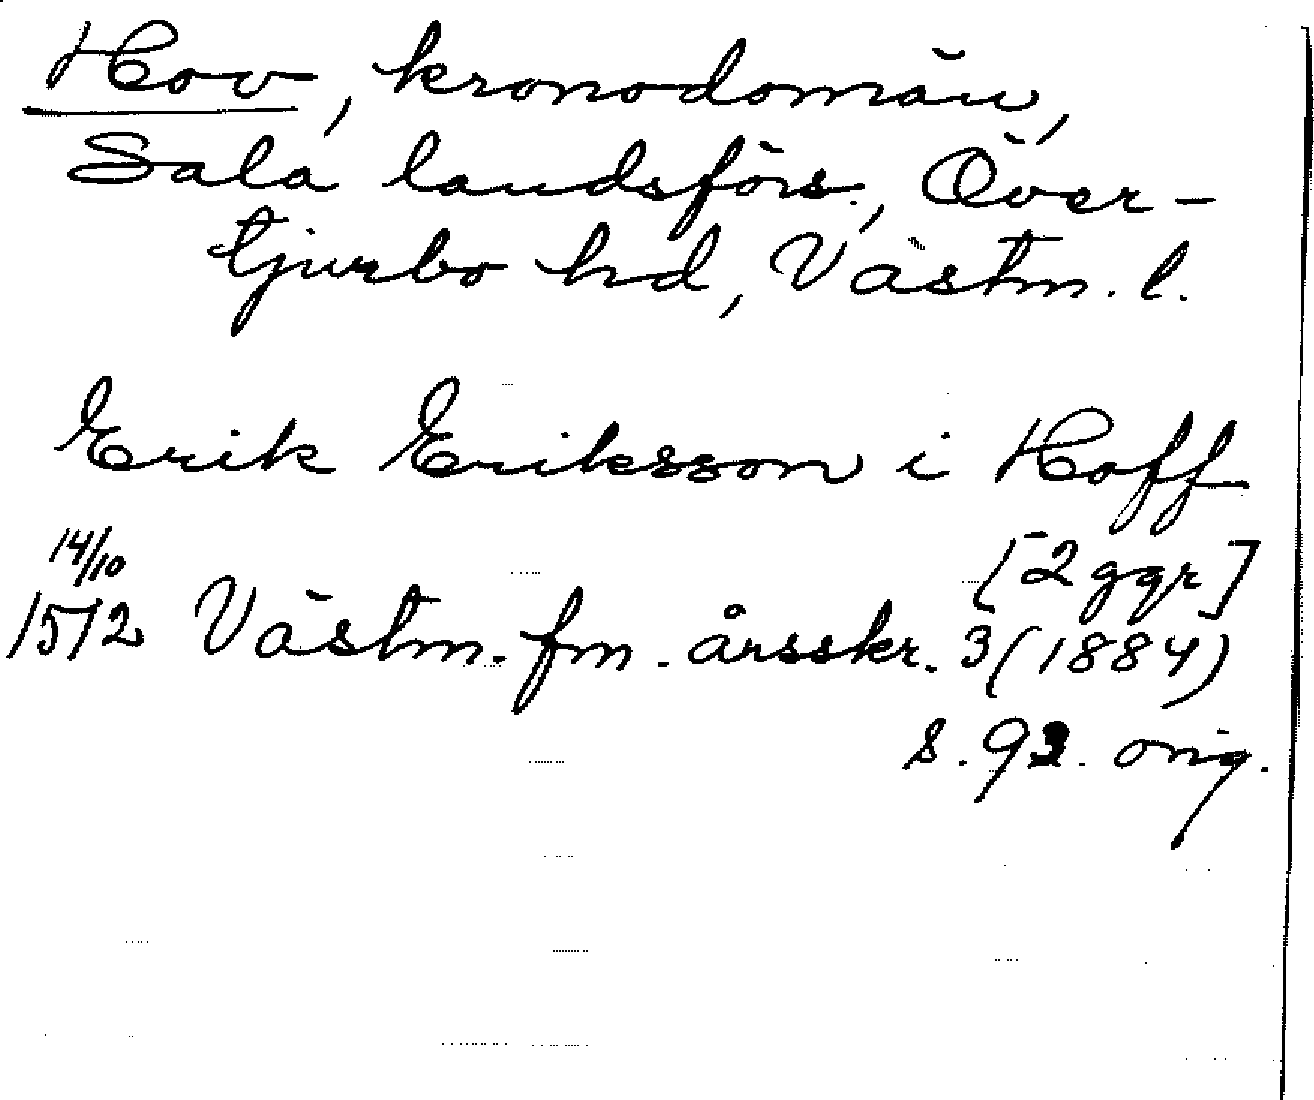 Hov, kronodomän,
Sala landsförs., Över-
tjurbo hd, Västm. l.
Erik Eriksson i Hoff
[2 ggr]
14/10
1572 Västm. fm. årsskr. 3 (1884)
s. 92. orig.